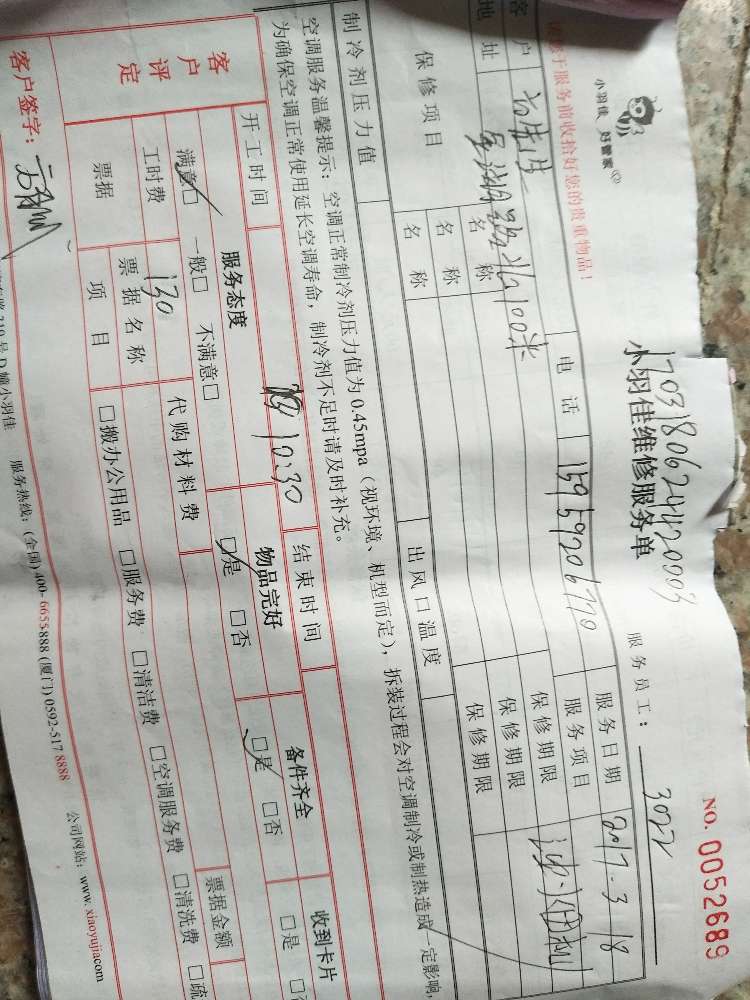 小羽佳 好管家
小羽佳维修服务单
NO. 0052689
于服务前收拾好您的贵重物品！
服务员工： 3022
客户
电话 15959206770
服务日期 2017-3-18
地址
北100米
服务项目
保修项目 名称 保修期限
名称 保修期限
名称 保修期限
制冷剂压力值 出风口温度
空调服务温馨提示：空调正常制冷剂压力值为0.45mpa（视环境、机型而定），拆装过程会对空调制冷或制热造成一定影响，
为确保空调正常使用延长空调寿命，制冷剂不足时请及时补充。
开工时间 10:30 结束时间
客户评定
服务态度 物品完好 备件齐全 收到卡片
满意□ 一般□ 不满意□ □是 □否 □是 □否 □是
工时费 130 代购材料费
票据 票据名称 票据金额
项目 □搬办公用品 □服务费 □清洁费 □空调服务费 □清洗费 □疏
客户签字：
号D幢小羽佳 服务热线：(全国) 400-6655-888 (厦门) 0592-517 8888 公司网站：www.xiaoyujia.com